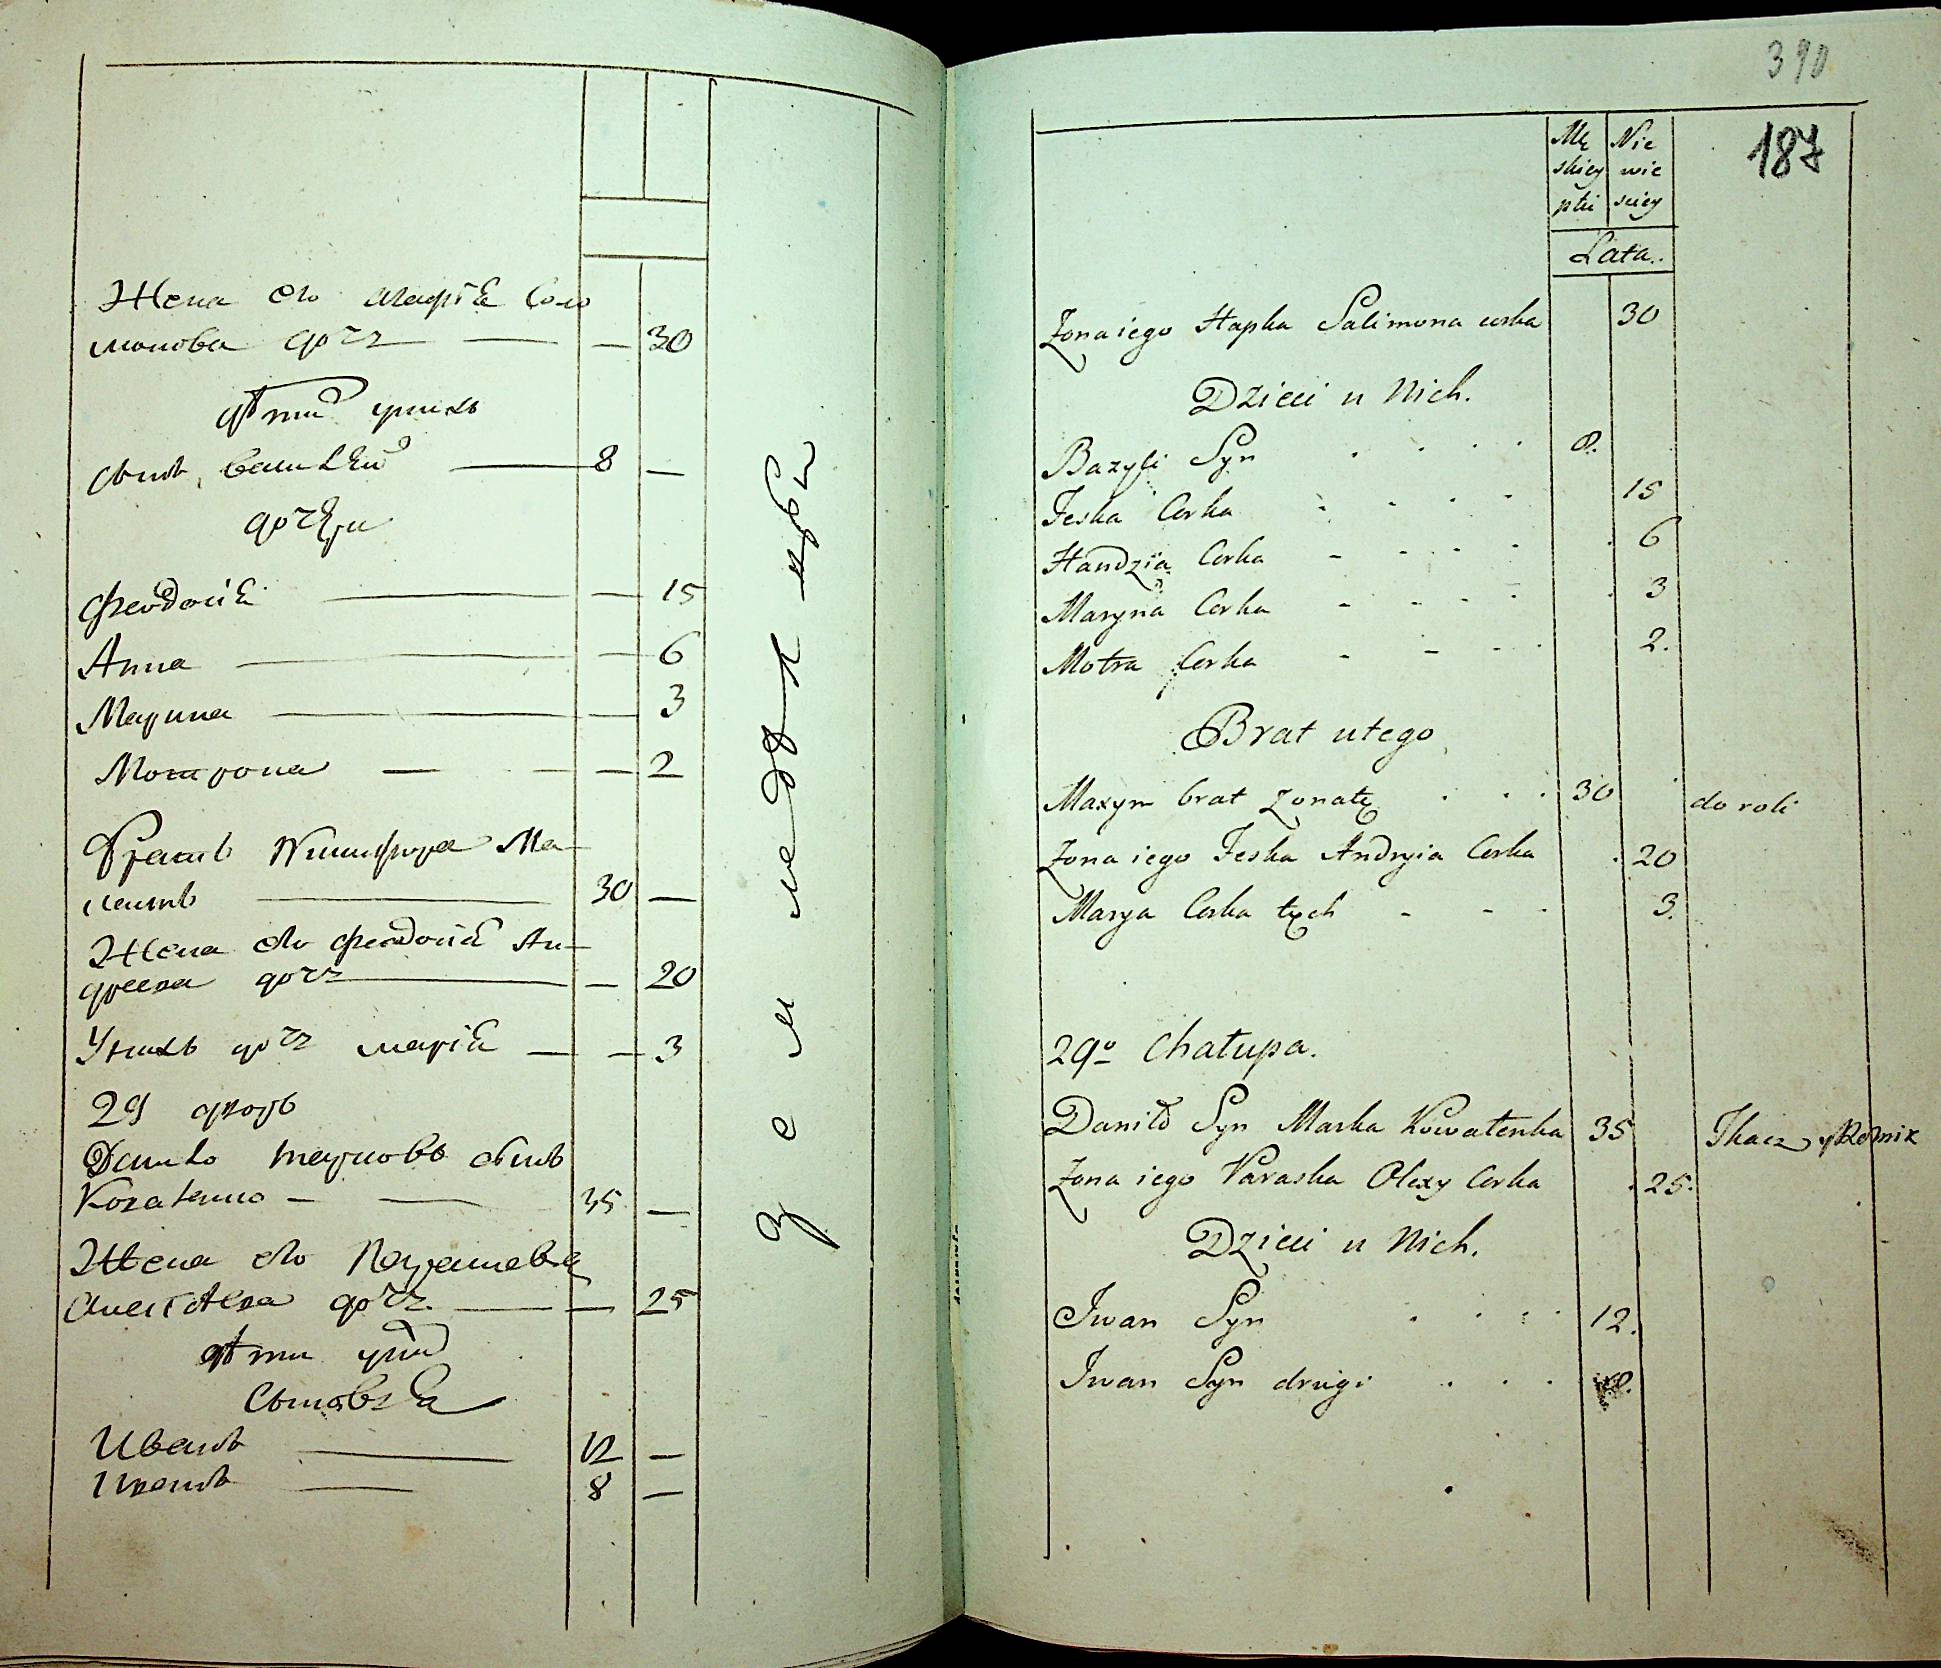 Жена его Агафія Соло
монова дочь — — 30
дѣти у нихъ
сынъ Василій — 8 —
дочери
Феодосія — — 15
Анна — — 6
Марина — — 3
Мотрона — — 2
Братъ Никифора Ма
ксимъ — 30 —
Жена его Феодосія Ан
дреева дочь — — 20
У нихъ дочь Марія — — 3
29 дворъ
Данило Марковъ сынъ
Коваленко — 35 —
Жена его Параскева
Алексѣева дочь — — 25
дѣти у них
Сыновья
Иванъ — 12 —
Иванъ — 8 —
земледѣлецъ
390
187
Mę Nie
skiey wie
płci sciey
Lata.
Zona iego Hapka Salimona corka 30
Dzieci u Nich.
Bazyli Syn . . . . 8.
Feska Corka . . . . 15
Handzia Corka - . . . . 6
Maryna Corka - . . . . 3
Motra Corka - - . . 2.
Brat u tego
Maxym brat Zonaty . . . 30 do roli
Zona iego Feska Andryia Corka . 20
Marya Corka tych - - . 3.
29º Chałupa.
Daniło Syn Marka Kowalenka 35 Tkacz y Rolnik
Zona iego Paraska Olexy Corka . 25.
Dzieci u Nich.
Iwan Syn . . . 12.
Iwan Syn drugi . . . 8.